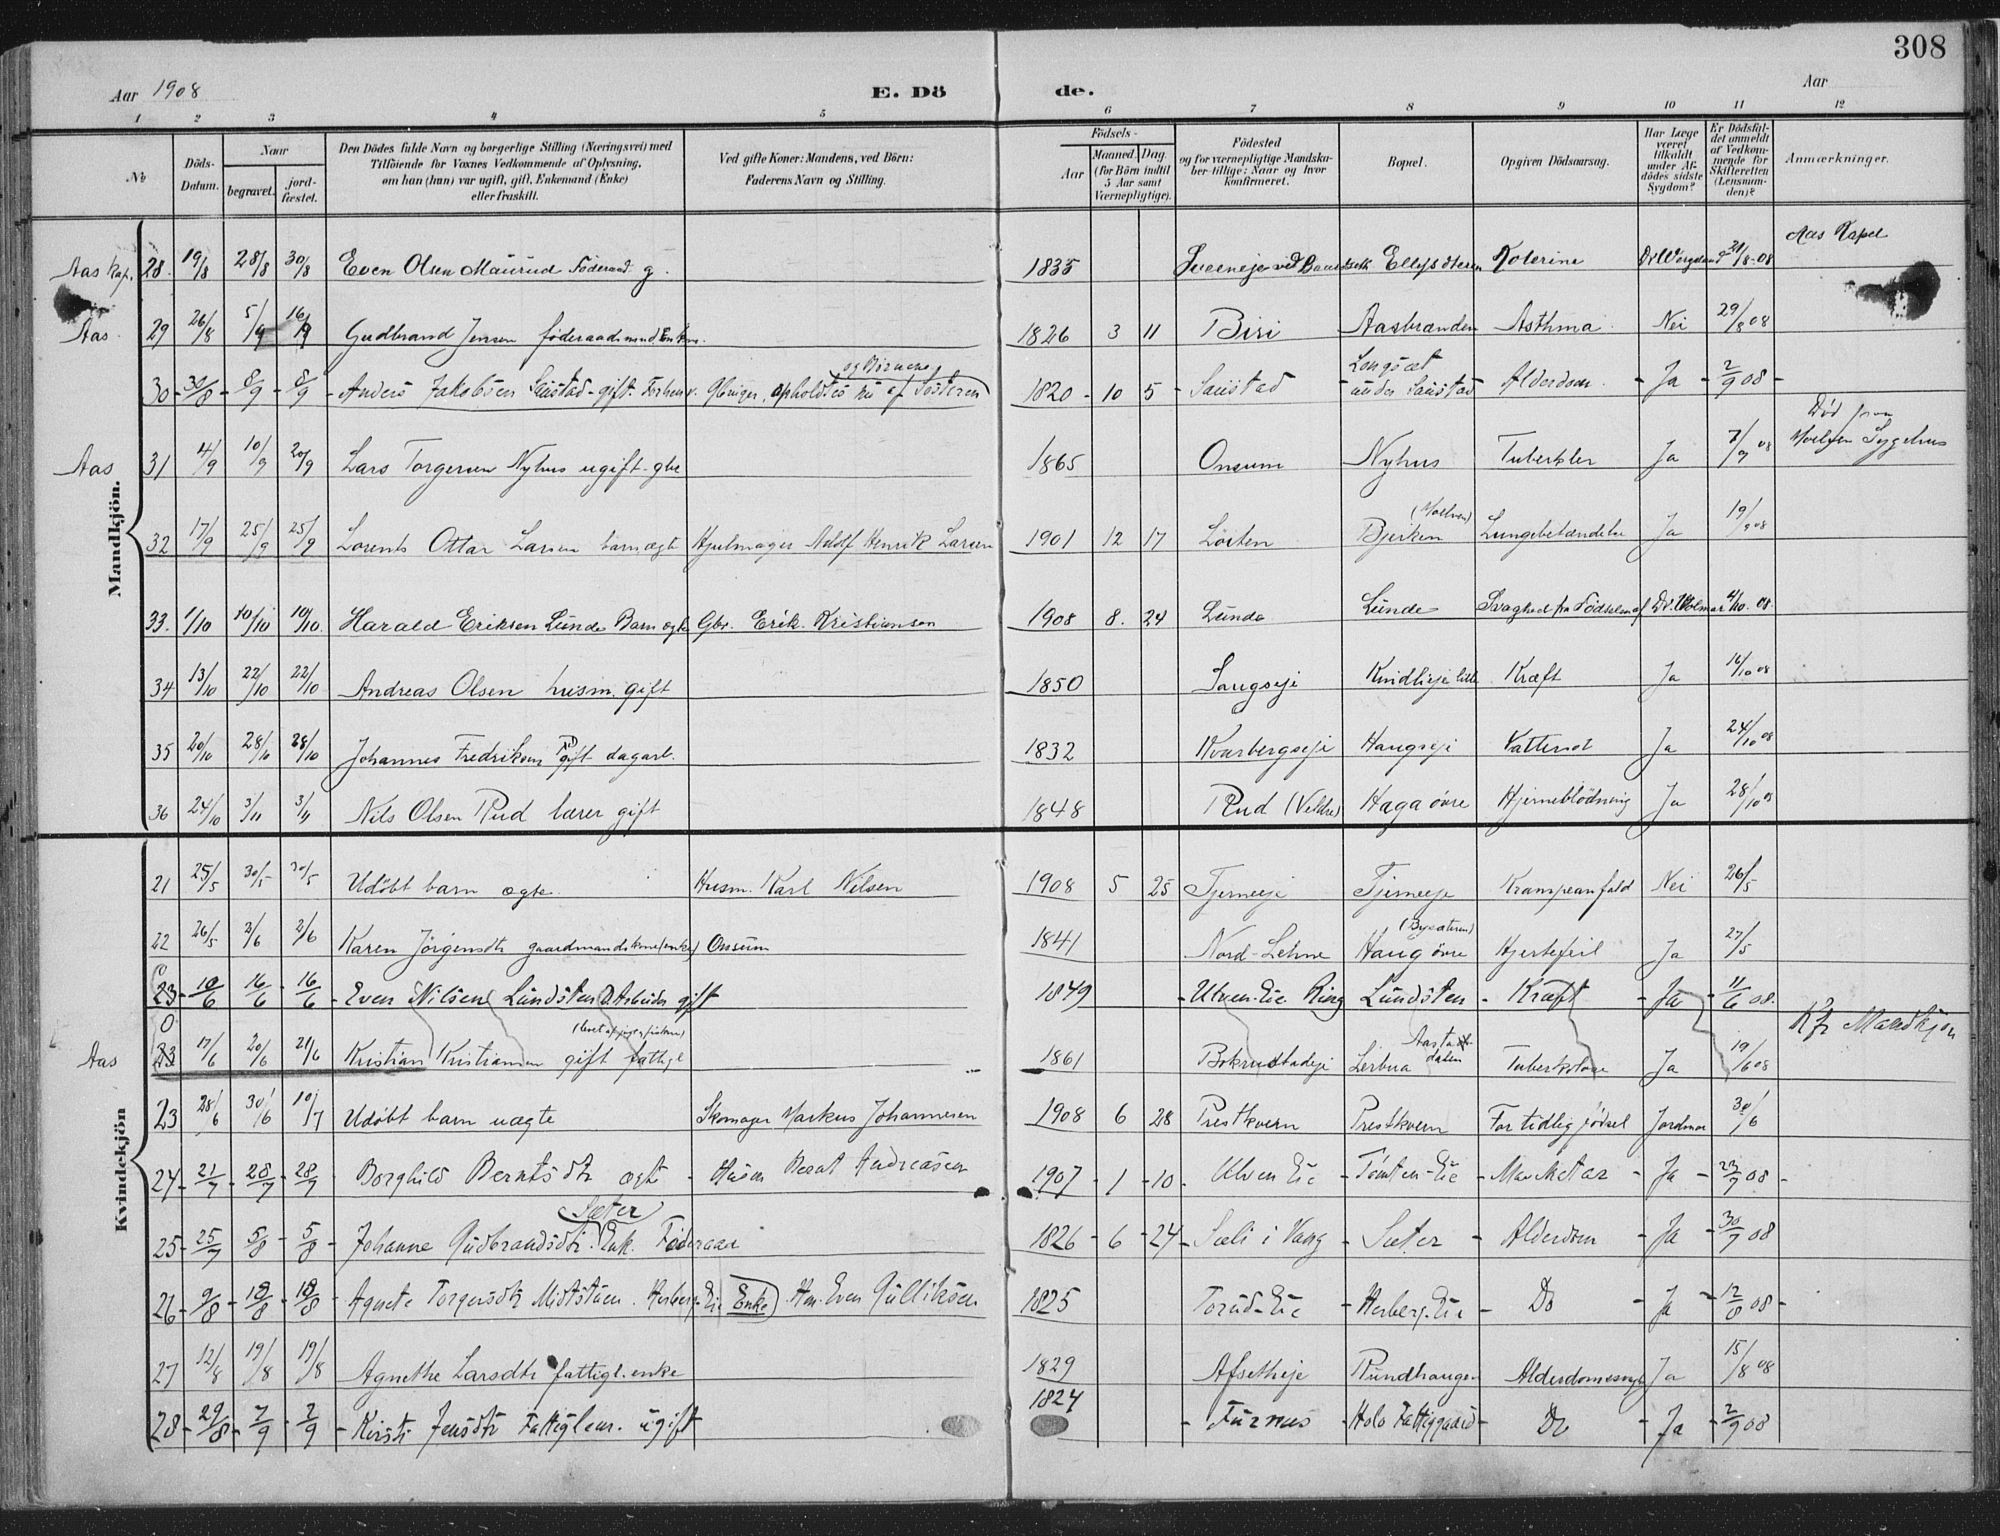 308
Aar 1908 E. Dö de. Aar
1 2 3 4 5 6 7 8 9 10 11 12
No
Döds-Datum.
Naar
begravet.
jord-fæstet.
Den Dödes fulde Navn og borgerlige Stilling (Næringsvei) med
Tilföiende for Voxnes Vedkommende af Oplysning,
om han (hun) var ugift, gift, Enkemand (Enke)
eller fraskilt.
Ved gifte Koner: Mandens, ved Börn:
Faderens Navn og Stilling.
Födsels-
Aar
Maaned. Dag.
(for Börn indtil
5 Aar samt
Værnepligtige).
Födested
og for værnepligtige Mandska-
ber tillige: Naar og hvor
konfirmeret.
Bopæl.
Opgiven Dödsaarsag.
Har Læge
været
tilkaldt
under Af-
dödes sidste
Sygdom?
Er Dödsfal-
det anmeldt
af Vedkom-
mende for
Skifteretten
(Lensman-
den)?
Anmærkninger.
Mandkjön.
Aas Kap. 28. 19/8 28/8 30/8 Even Olsen Maurud Föderaad g. 1835 Ellefsæteren Kolerine 31/8-08 Aas Kapel
Aas 29 26/8 5/9 16/9 Gudbrand Jensen föderaadsmand Enkm. 1826 3 11 Biri Aasbrænden Asthma Nei 29/8 08
30 - 30/8 - 8/9 - 8/9 - Anders Jakobsen Saustad - gift. Forhenv. Gbruger, opholdtes nu af Søsteren og Börnene 1820 - 10 - 5 - Saustad - Langsæt under Saustad - Alderdom. - Ja - 2/9 08 -
Aas 31 4/9 10/9 20/9 Lars Torgersen Nyhus ugift gbr 1865 Onsum Nyhus Tuberkler Ja 7/9 08 Död paa Moelven Sygehus
32 17/9 25/9 25/9 Lorents Ottar Larsen barn ægte Hjulmager Adolf Henrik Larsen 1901 12 17 Löiten Bjerken (Moelven) Lungebetændelse Ja 19/9 08
33. 1/10 10/10 10/10 Harald Eriksen Lunde Barn ægte Gbr. Erik Kristiansen 1908 8. 24 Lunde Lunde Svaghed fra Födselen af Dr. Wolmar 4/10 08
34 13/10 22/10 22/10 Andreas Olsen husm. gift 1850 Kindlieje lille Kræft Ja 16/10 08
35 20/10 28/10 28/10 Johannes Fredriksen gift dagarb. 1832 Kvarbergseje Haugseje Vattersot Ja 24/10 08
36 24/10 3/11 3/11 Nils Olsen Rud lærer gift 1848 Rud (Veldre) Haga övre Hjerneblödning Ja 28/10 08
Kvindekjön
21 25/5 30/5 30/5 Udöbt barn ægte. Husm. Karl Nilsen 1908 5 25 Tjerneeje Tjerneeje Krampeanfald Nei 26/5
22 26/5 2/6 2/6 Karen Jörgensdt gaardmandskone (enke) Onsum 1841 Nord-Lehne Haug övre (Bysæteren) Hjertefeil Ja 27/5
23 - 10/6 - 16/6 - 16/6 - Even Nilsen Lundsten Arbeider gift 1849 - Ulven-Eie Ring Lundsten - Kræft - Ja - 11/6 08.
Kfr Mandkjön
Aas 23 17/6 20/6 20/6 Kristian Kristiansen gift fattigl (levet af jagt og fiskeri) 1861 Lerbua Aastadalen Tuberkolose Ja 19/6 08
23 28/6 30/6 10/7 Udöbt barn uægte Skomager Markus Johannesen 1908 6 28 Prestkvern Prestkvern For tidlig födsel Jordmor 30/6
24 - 21/7 - 28/7 - 28/7 - Borghild Berntsdtr ægte - Husm Bernt Andreasen 1907 - 1 - 10 - Ulven Eie - Tömten-Eie - - Ja - 23/7 08 -
25 - 25/7 - 5/8 - 5/8 - Johanne Gudbrandsdtr. Enk. Föderaad Sæter 1826 - 6 - 24 - Sæli i Vang - Sæter - Alderdom - Ja - 30/7 08
26 - 9/8 - 18/8 - 18/8 - Agnete Torgersdtr Midtstuen. Herberg-Eie (Enke) Hm. Even Gulliksen 1825 Torud-Eie - Herberg-Eie - Do - Ja - 12/8 08 -
27 12/8 19/8 19/8 Agnethe Larsdtr fattigl. enke 1829 Afsetheje Rundhaugen Alderdomssvaghed Ja 15/8 08
28 - 29/8 - 7/9 - 7/9 - Kirsti Jensdtr Fattiglem. ugift 1824 - Furnes - Holo Fattiggaard - Do - Ja - 2/9 08